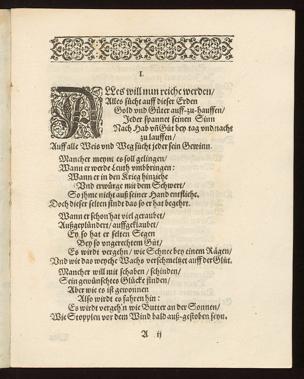 I.
ALles will nun reiche werden/
Alles sücht auff dieser Erden
Gold und Güter auff-zu-hauffen/
Jeder spannet seinen Sinn
Nach Hab vñ Güt bey tag und nacht
zu lauffen/
Auff alle Weis und Weg sücht jeder sein Gewinn.
Mancher meynt es soll gelingen/
Wann er werde Leuth vmbbringen:
Wann er in den Krieg hinziehe
Und erwürge mit dem Schwert/
So ihme nicht auß seiner Hand entfliehe.
Doch dieser selten findt das so er hat begehrt.
Wann er schon hat viel geraubet/
Außgeplündert/ auffgeklaubet/
Ey so hat er selten Segen
Bey so ungerechtem Güt/
Es wird vergehn/ wie Schnee bey einem Rägen/
Und wie das weyche Wachs verschmeltzet auff der Glüt.
Mancher will mit schaben/ schinden/
Sein gewünschtes Glücke finden/
Aber wie es ist gewonnen
Also wirdt es fahren hin:
Es wird vergeh'n wie Butter an der Sonnen/
Wie Stopplen vor dem Wind bald auß-gestoben seyn.
A ij